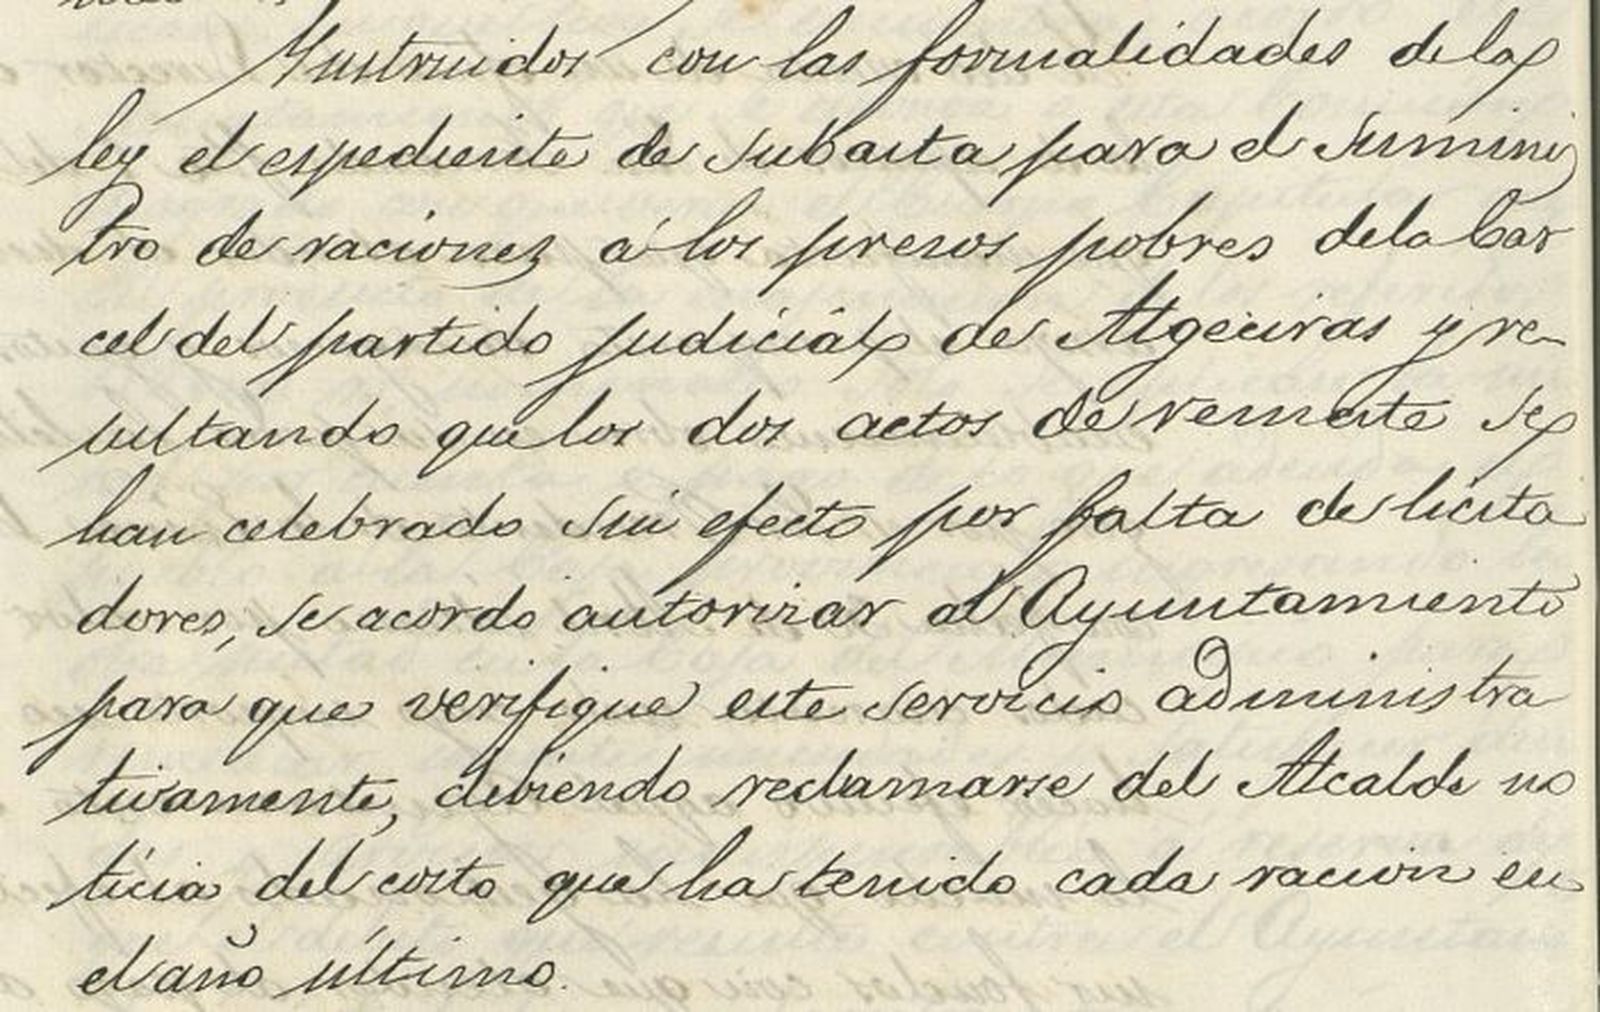 Instruidos con las formalidades de la
ley el espediente de subasta para el sumini
tro de raciones á los presos pobres de la Car
cel del partido judiciál de Algeciras y re-
sultando que los dos actos de remate se
han celebrado sin efecto por falta de licita
dores, se acordo autorizar al Ayuntamiento
para que verifique este servicio administra
tivamente, debiendo reclamarse del Alcalde no
ticia del costo que ha tenido cada racion en
el año último.